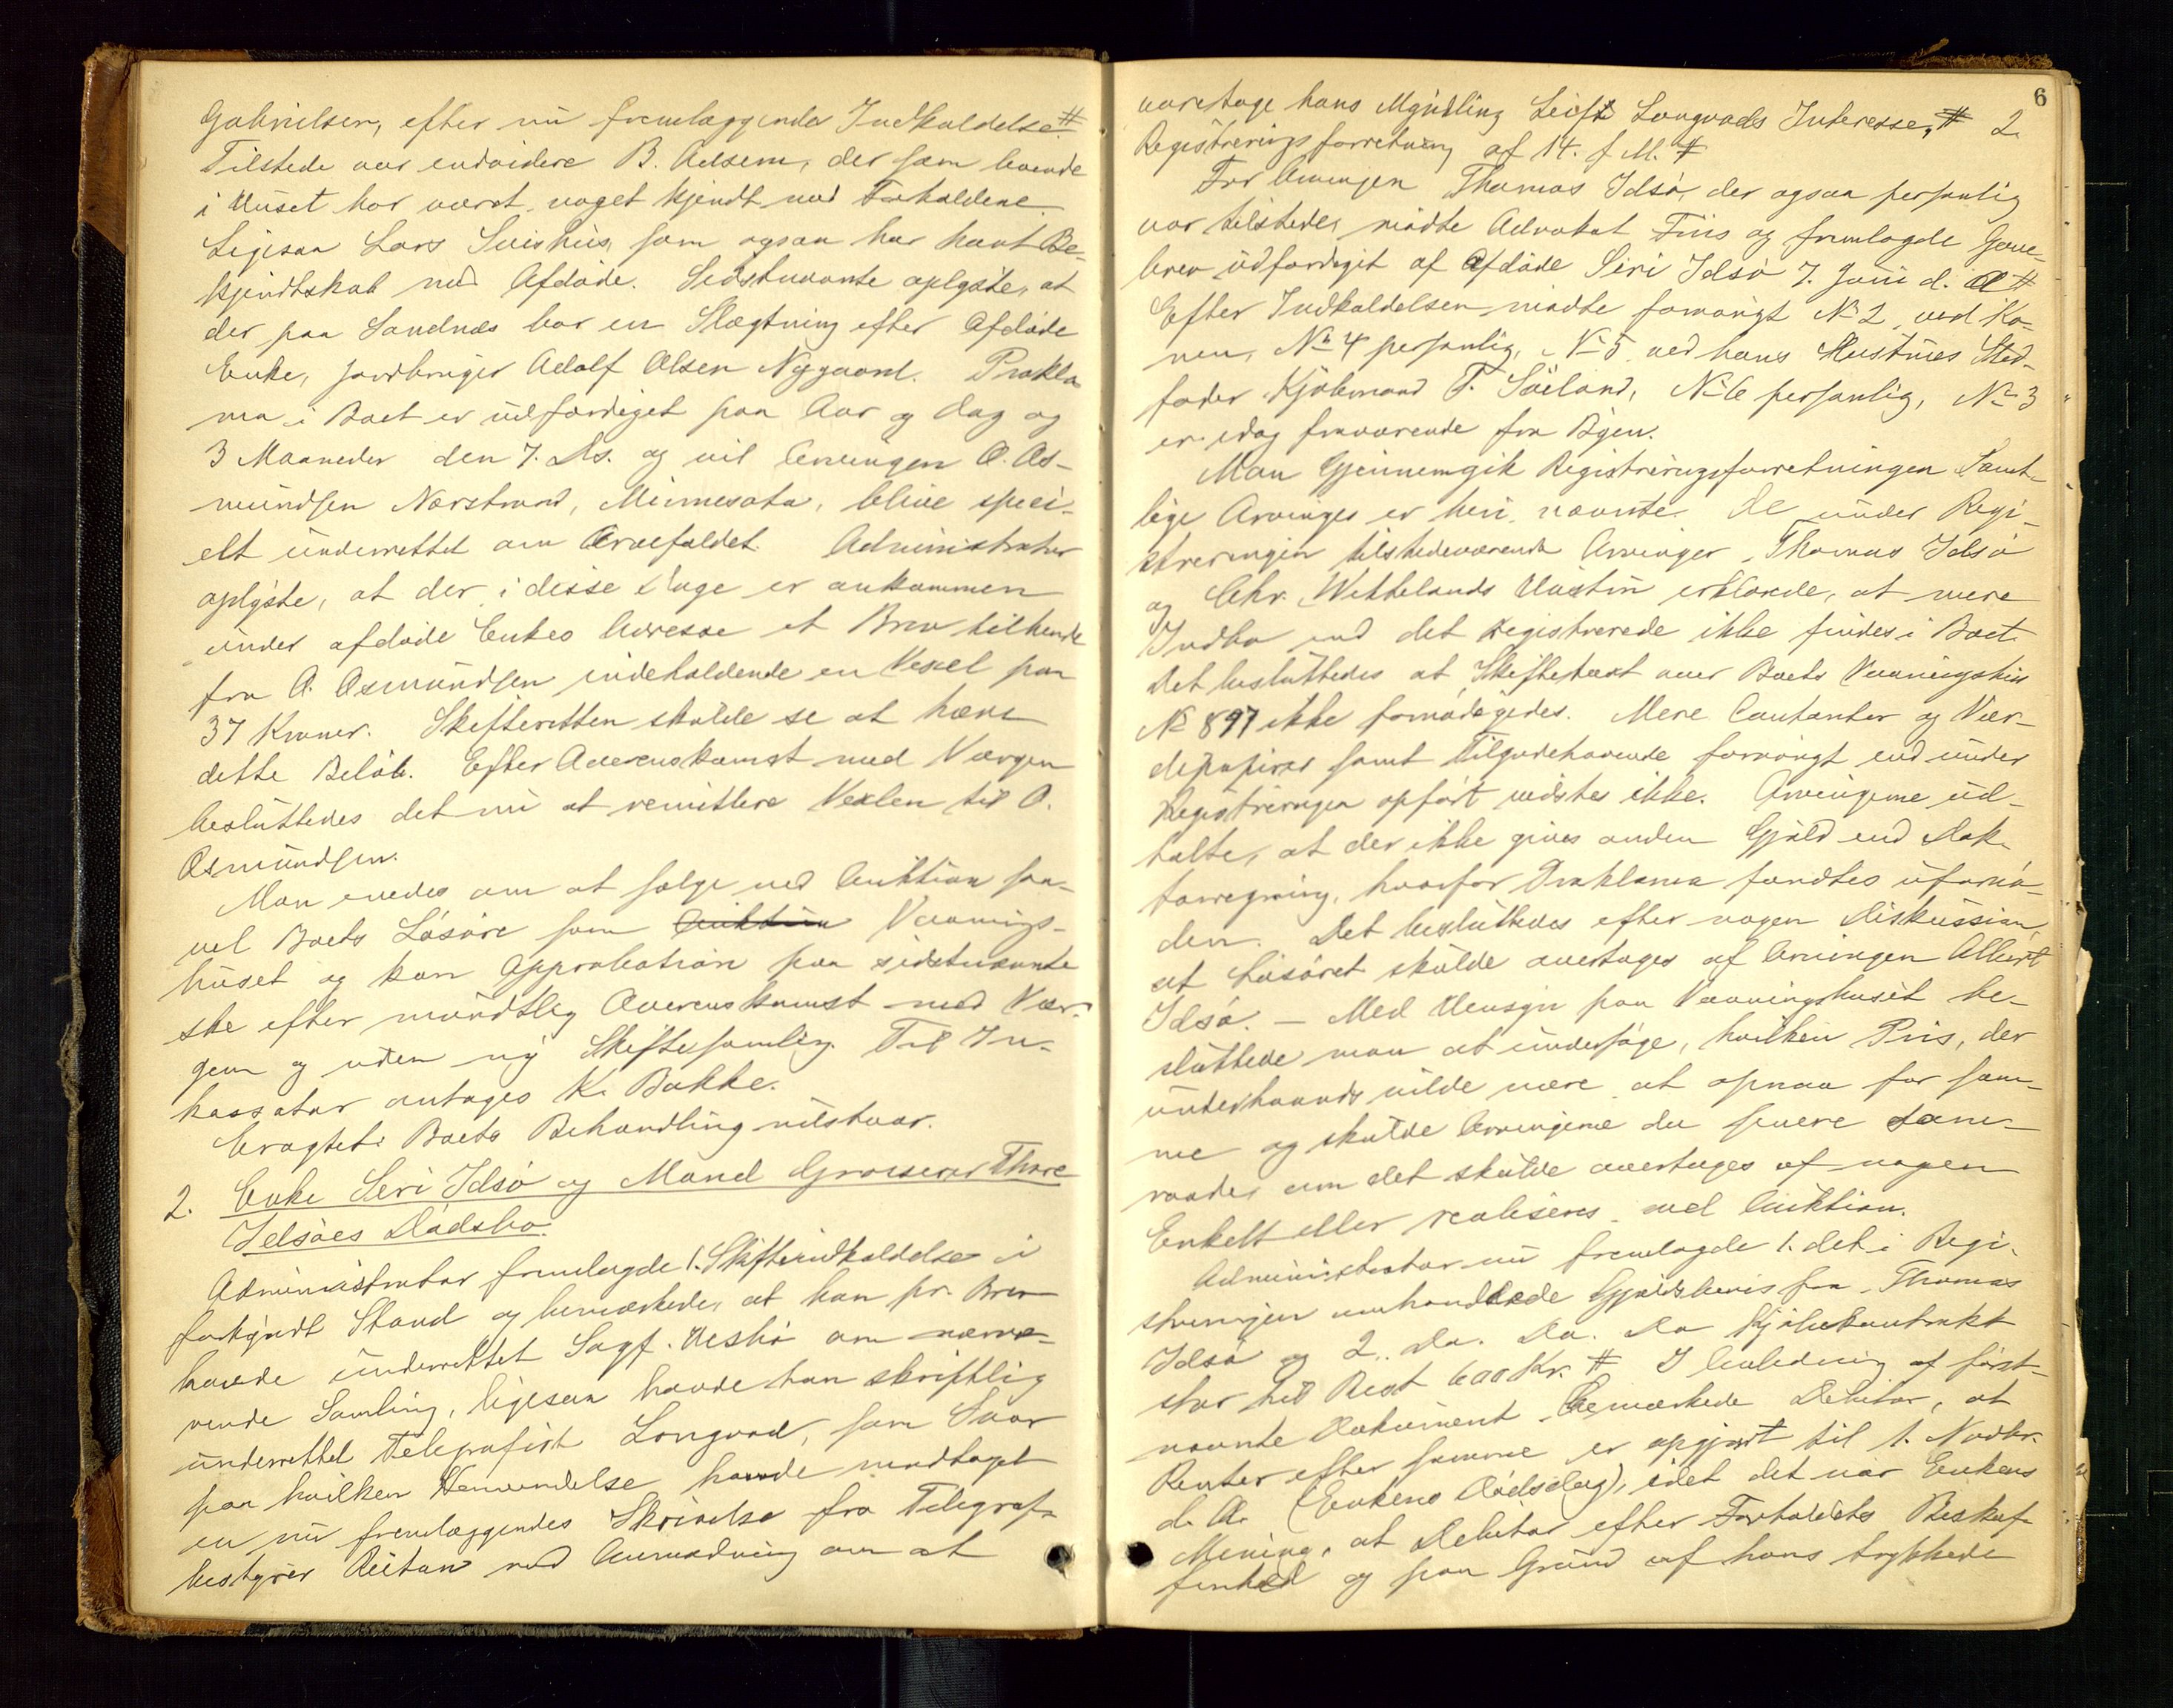 Gabrielsen, efter nu fremlæggende Indkaldelse #
Tilstede var endvidere B. Adsem, der som boende
i Huset har været noget kjendt med Forholdene.
Ligesaa Lars Svishus, som ogsaa har havt Be-
kjendtskab med Afdøde. Sidstnævnte oplyste, at
der paa Sandnes bor en Slægtning efter Afdøde
Enke, Jordbruger Adolf Olsen Nygaard. Prokla-
ma i Boet er udfærdiget paa Aar og Dag og
3 Maaneder den 7. Ds. og vil Arvingen O. As-
mundsen Nerstrand, Minnesota, blive speci-
elt underrettet om Arvefaldet. Administrator
oplyste, at der i disse Dage er ankommen
under afdøde Enkes Adresse et Brev tilhende
fra O. Asmundsen indeholdende en Vexel paa
37 Kroner. Skifteretten skulde se at hæve
dette Beløb. Efter Overenskomst med Værgen
besluttedes det nu at remittere Vexlen til O.
Osmundsen.
Man enedes om at sælge ved Auktion saa-
vel Boets Løsøre som Auktion Vaanings-
huset og kan Approbation paa sidstnævnte
ske efter mundtlig Overenskomst med Vær-
gen og uden ny Skiftesamling. Til In-
kassator antages K. Bakke.
Eragtet: Boets Behandling udstaar.
2. Enke Siri Idsø og Mand Grosserer Thore
Idsøes Dødsbo.
Administrator fremlagde 1. Skifteindkaldelse i
forkyndt Stand og bemærkede, at han pr. Brev
havde underrettet Sagf. Meshø om nærvæ-
rende Samling, ligesaa havde han skriftlig
underrettet Telegrafist Longvad, som Svar
paa hvilken Henvendelse havde modtaget
en nu fremlæggendes Skrivelse fra Telegraf-
bestyrer Reitan med Anmodning om at
6
varetage hans Myndling Leifs Longvads Interesse, # 2.
Registreringsforretning af 14. f. M. #
For Arvingen Thomas Idsø, der ogsaa personlig
var tilstede, mødte Advokat Friis og fremlagde Gave-
brev udfærdiget af Afdøde Siri Idsø 7. Juni d. A #
Efter Indkaldelsen mødte forøvrigt No 2 ved Ko-
nen, No 4 personlig, No 5 ved hans Hustrues Sted-
fader Kjøbmand T. Søiland, No 6 personlig, No 3
er idag fraværende fra Byen.
Man Gjennemgik Registreringsforretningen Samt-
lige Arvinger er heri nævnte. De under Regi-
streringen tilstedeværende Arvinger, Thomas Idsø
og Chr. Wettelands Hustru erklærede, at mere
Indbo end det registrerede ikke findes i Boet.
Det besluttedes at Skiftetaxt over Boets Vaaningshus
No 897 ikke fornødigedes. Mere Contanter og Vær-
dipapirer samt Tilgodehavende forøvrigt end under
Registreringen opført vidstes ikke. Arvingerne ud-
talte, at der ikke gives anden Gjæld end Dok-
torregning, hvorfor Proklama fandtes ufornø-
den. Det besluttedes efter nogen Diskussion,
at Løsøret skulde overtages af Arvingen Albert
Idsø. — Med Hensyn paa Vaaningshuset be-
sluttede man at undersøge, hvilken Pris, der
underhaands vilde være at opnaa for sam-
me og skulde Arvingerne da senere sam-
raades om det skulde overtages af nogen
Enkelt eller realiseres ved Auktion.
Administrator nu fremlagde 1. det i Regi-
streringen omhandlede Gjældsbevis fra Thomas
Idsø og 2. Do. Do. Do Kjøbekontrakt
stor til Rest 600 Kr. # I Anledning af først-
nævnte Dokument bemærkede Debitor, at
Renter efter samme er opgjort til 1. Novbr.
d. A. (Enkens Dødsdag), idet det var Enkens
Mening, at Debitor efter Forholdets Beskaf-
fenhed og paa Grund af hans trykkede